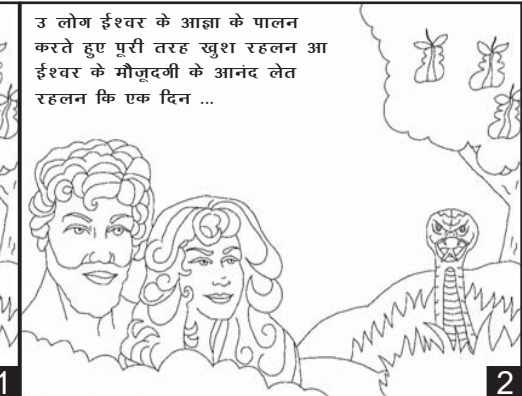 उ लोग ईश्वर के आज्ञा के पालन
करते हुए पूरी तरह खुश रहलन आ
ईश्वर के मौजूदगी के आनंद लेत
रहलन कि एक दिन ...
1
2